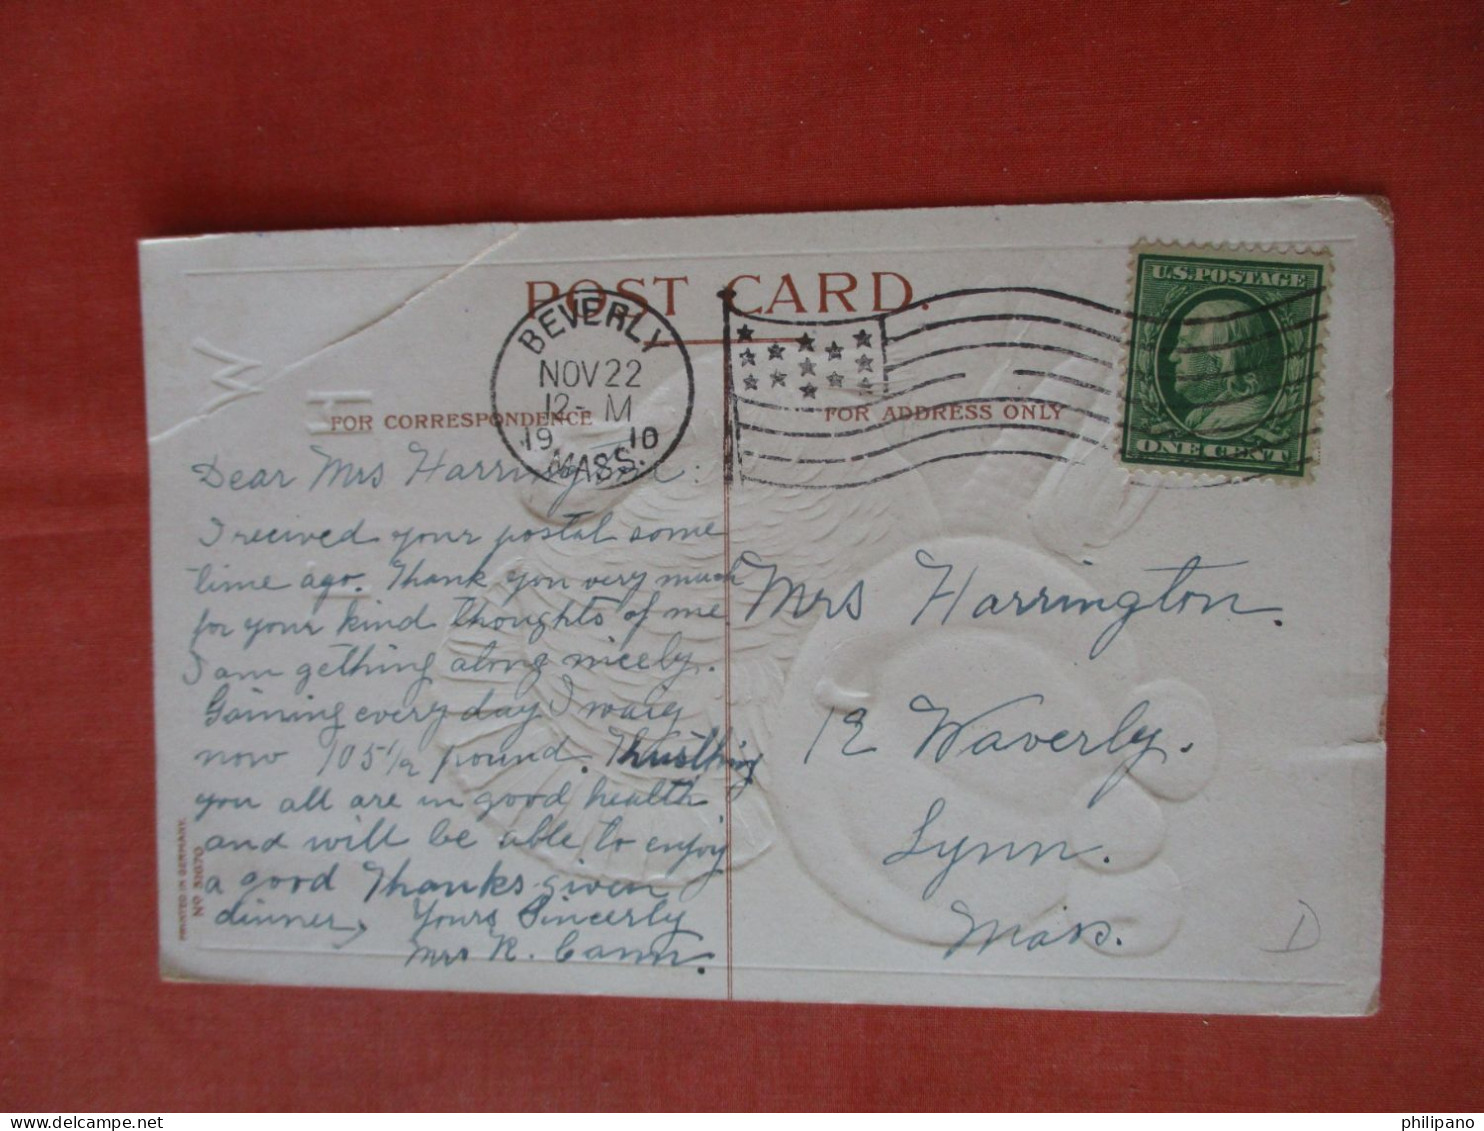 POST CARD.
BEVERLY
NOV 22
12- M
19 10
MASS.
U.S. POSTAGE
ONE CENT
FOR CORRESPONDENCE
FOR ADDRESS ONLY
Dear Mrs Harrington:
I received your postal some
time ago. Thank you very much
for your kind thoughts of me
I am gething along nicely.
Gaining every day I waig
now 105 1/2 pound. Thrusthing
you all are in good health
and will be able to enjoy
a good Thanksgiven
dinner,
Yours Sincerly
Mrs R. Cann.
Mrs Harrington.
Waverly.
Lynn.
Mass.
D
PRINTED IN GERMANY.
No 31070
philipano